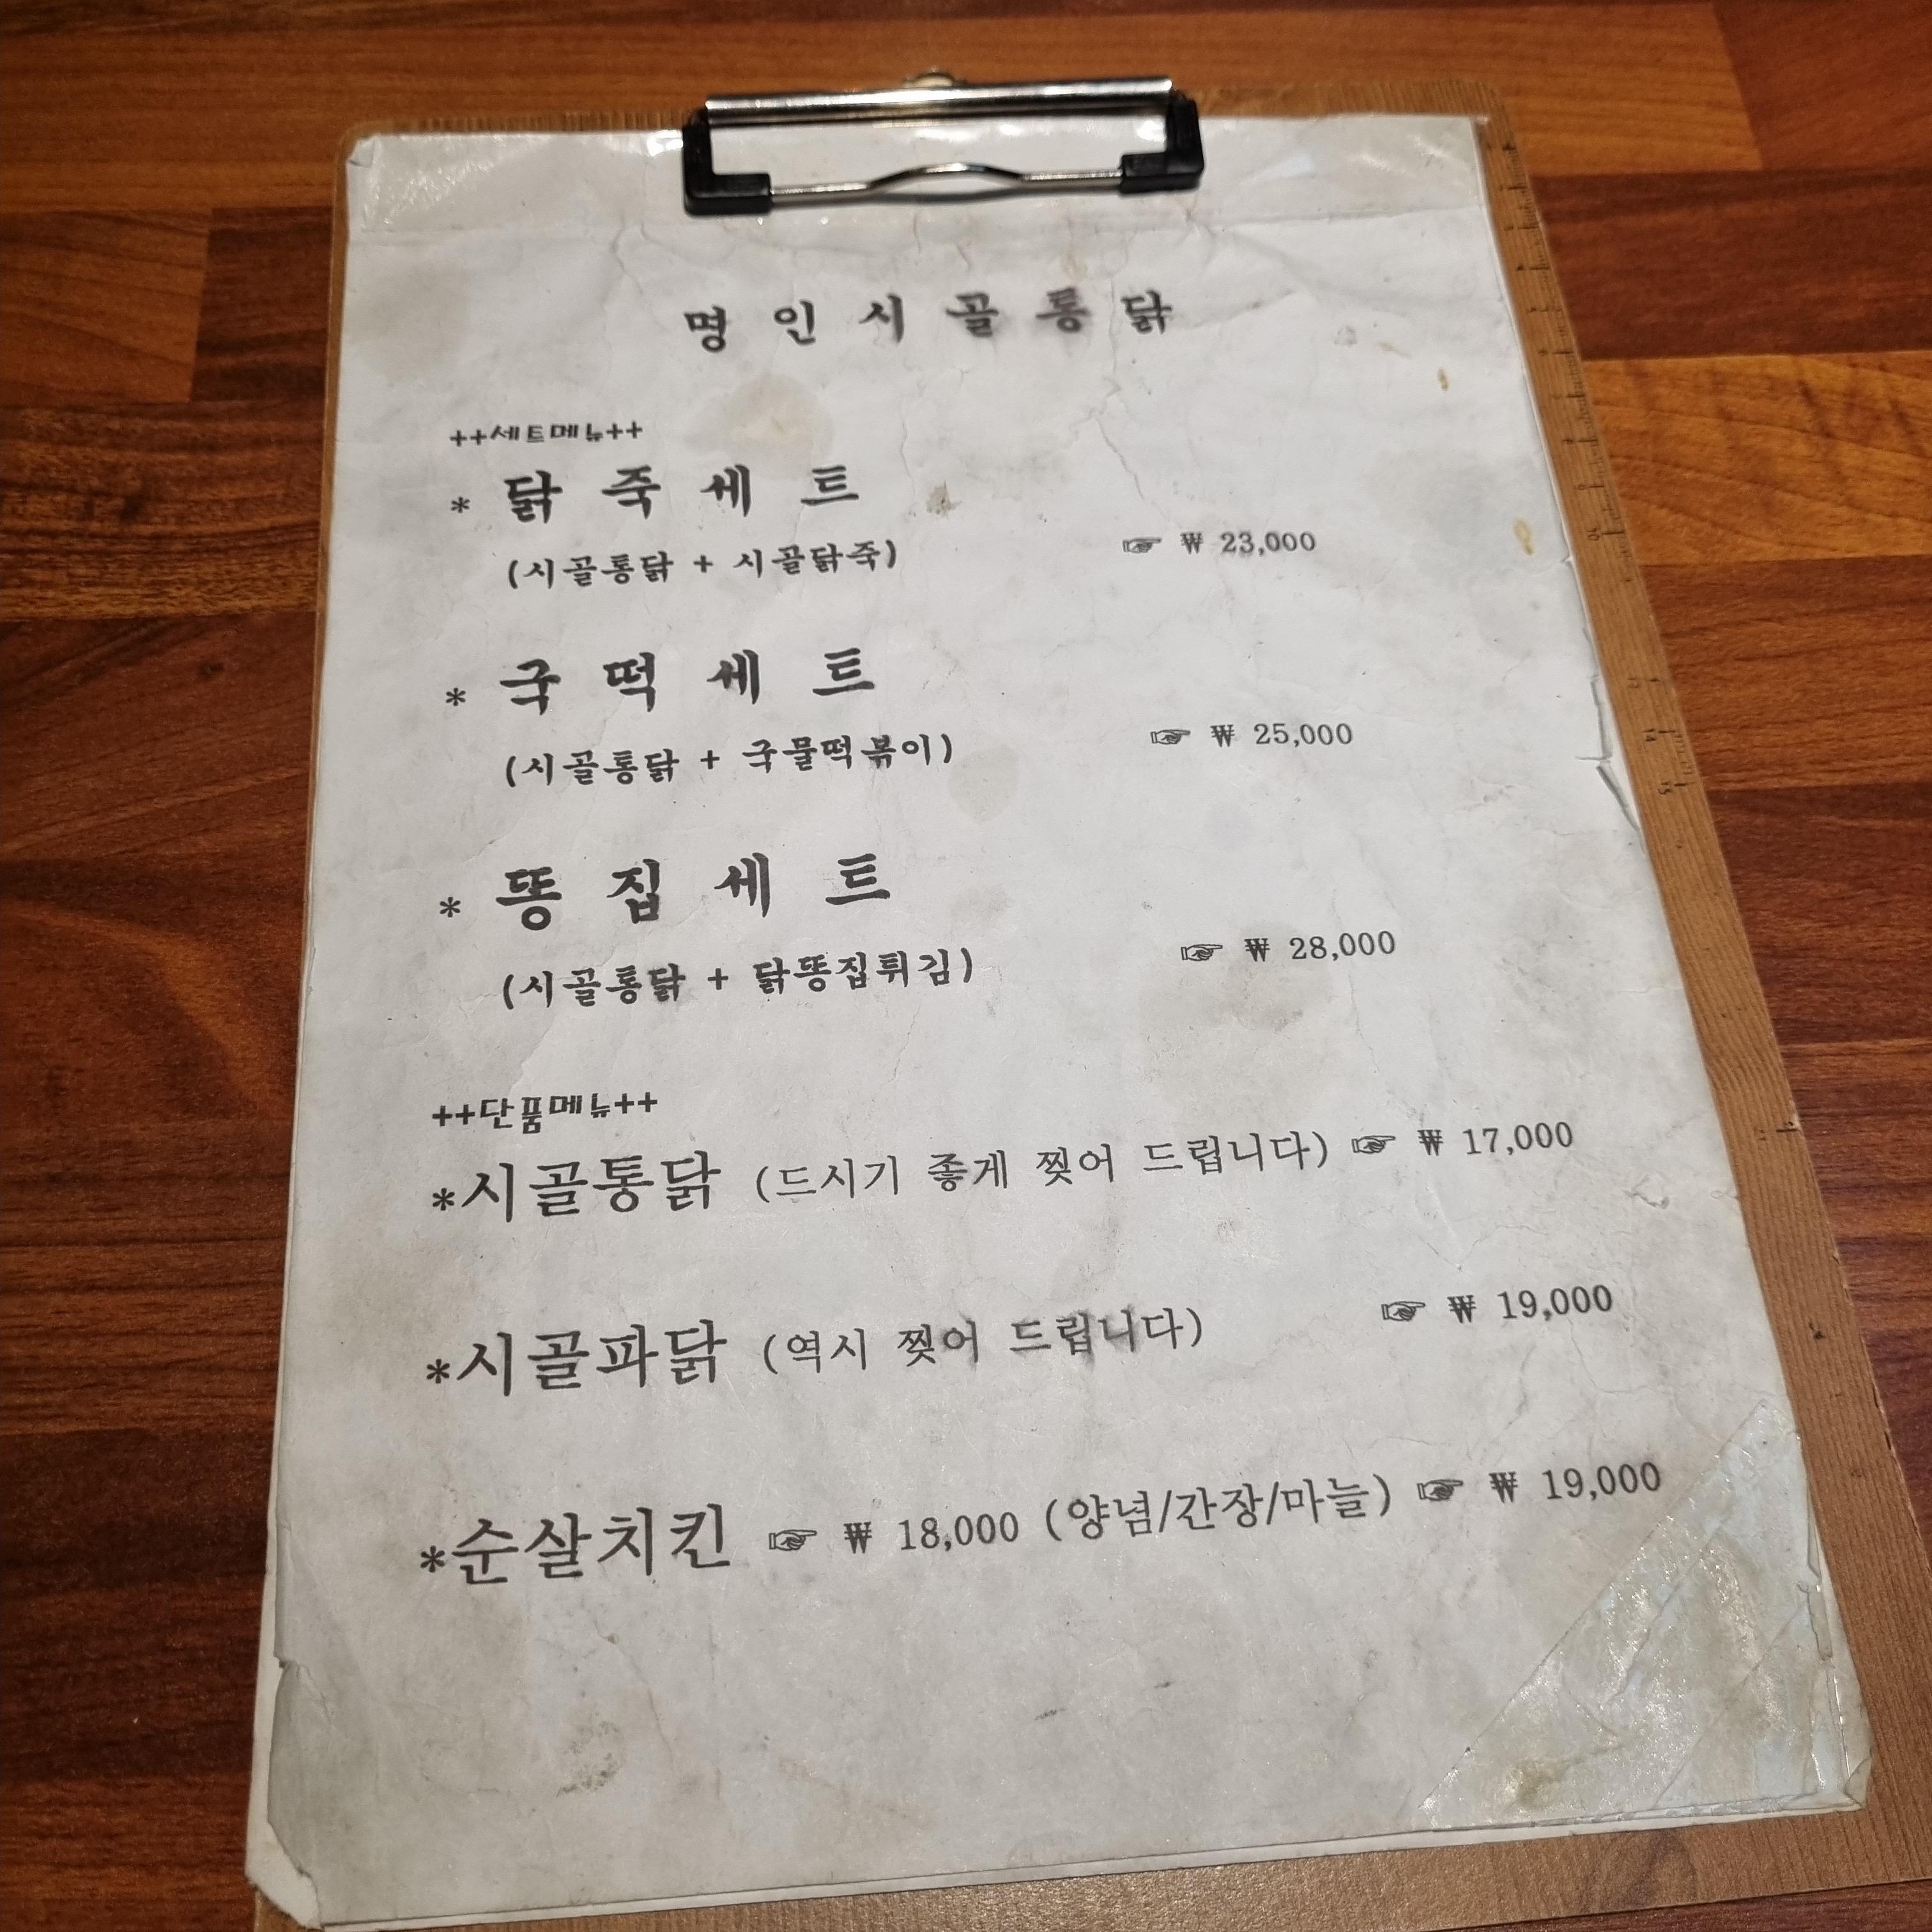 명 인 시 골 통 닭
++세트메뉴++
* 닭 죽 세 트
(시골통닭 + 시골닭죽) ☞ ₩ 23,000
* 국 떡 세 트
(시골통닭 + 국물떡볶이) ☞ ₩ 25,000
* 똥 집 세 트
(시골통닭 + 닭똥집튀김) ☞ ₩ 28,000
++단품메뉴++
*시골통닭 (드시기 좋게 찢어 드립니다) ☞ ₩ 17,000
*시골파닭 (역시 찢어 드립니다) ☞ ₩ 19,000
*순살치킨 ☞ ₩ 18,000 (양념/간장/마늘) ☞ ₩ 19,000